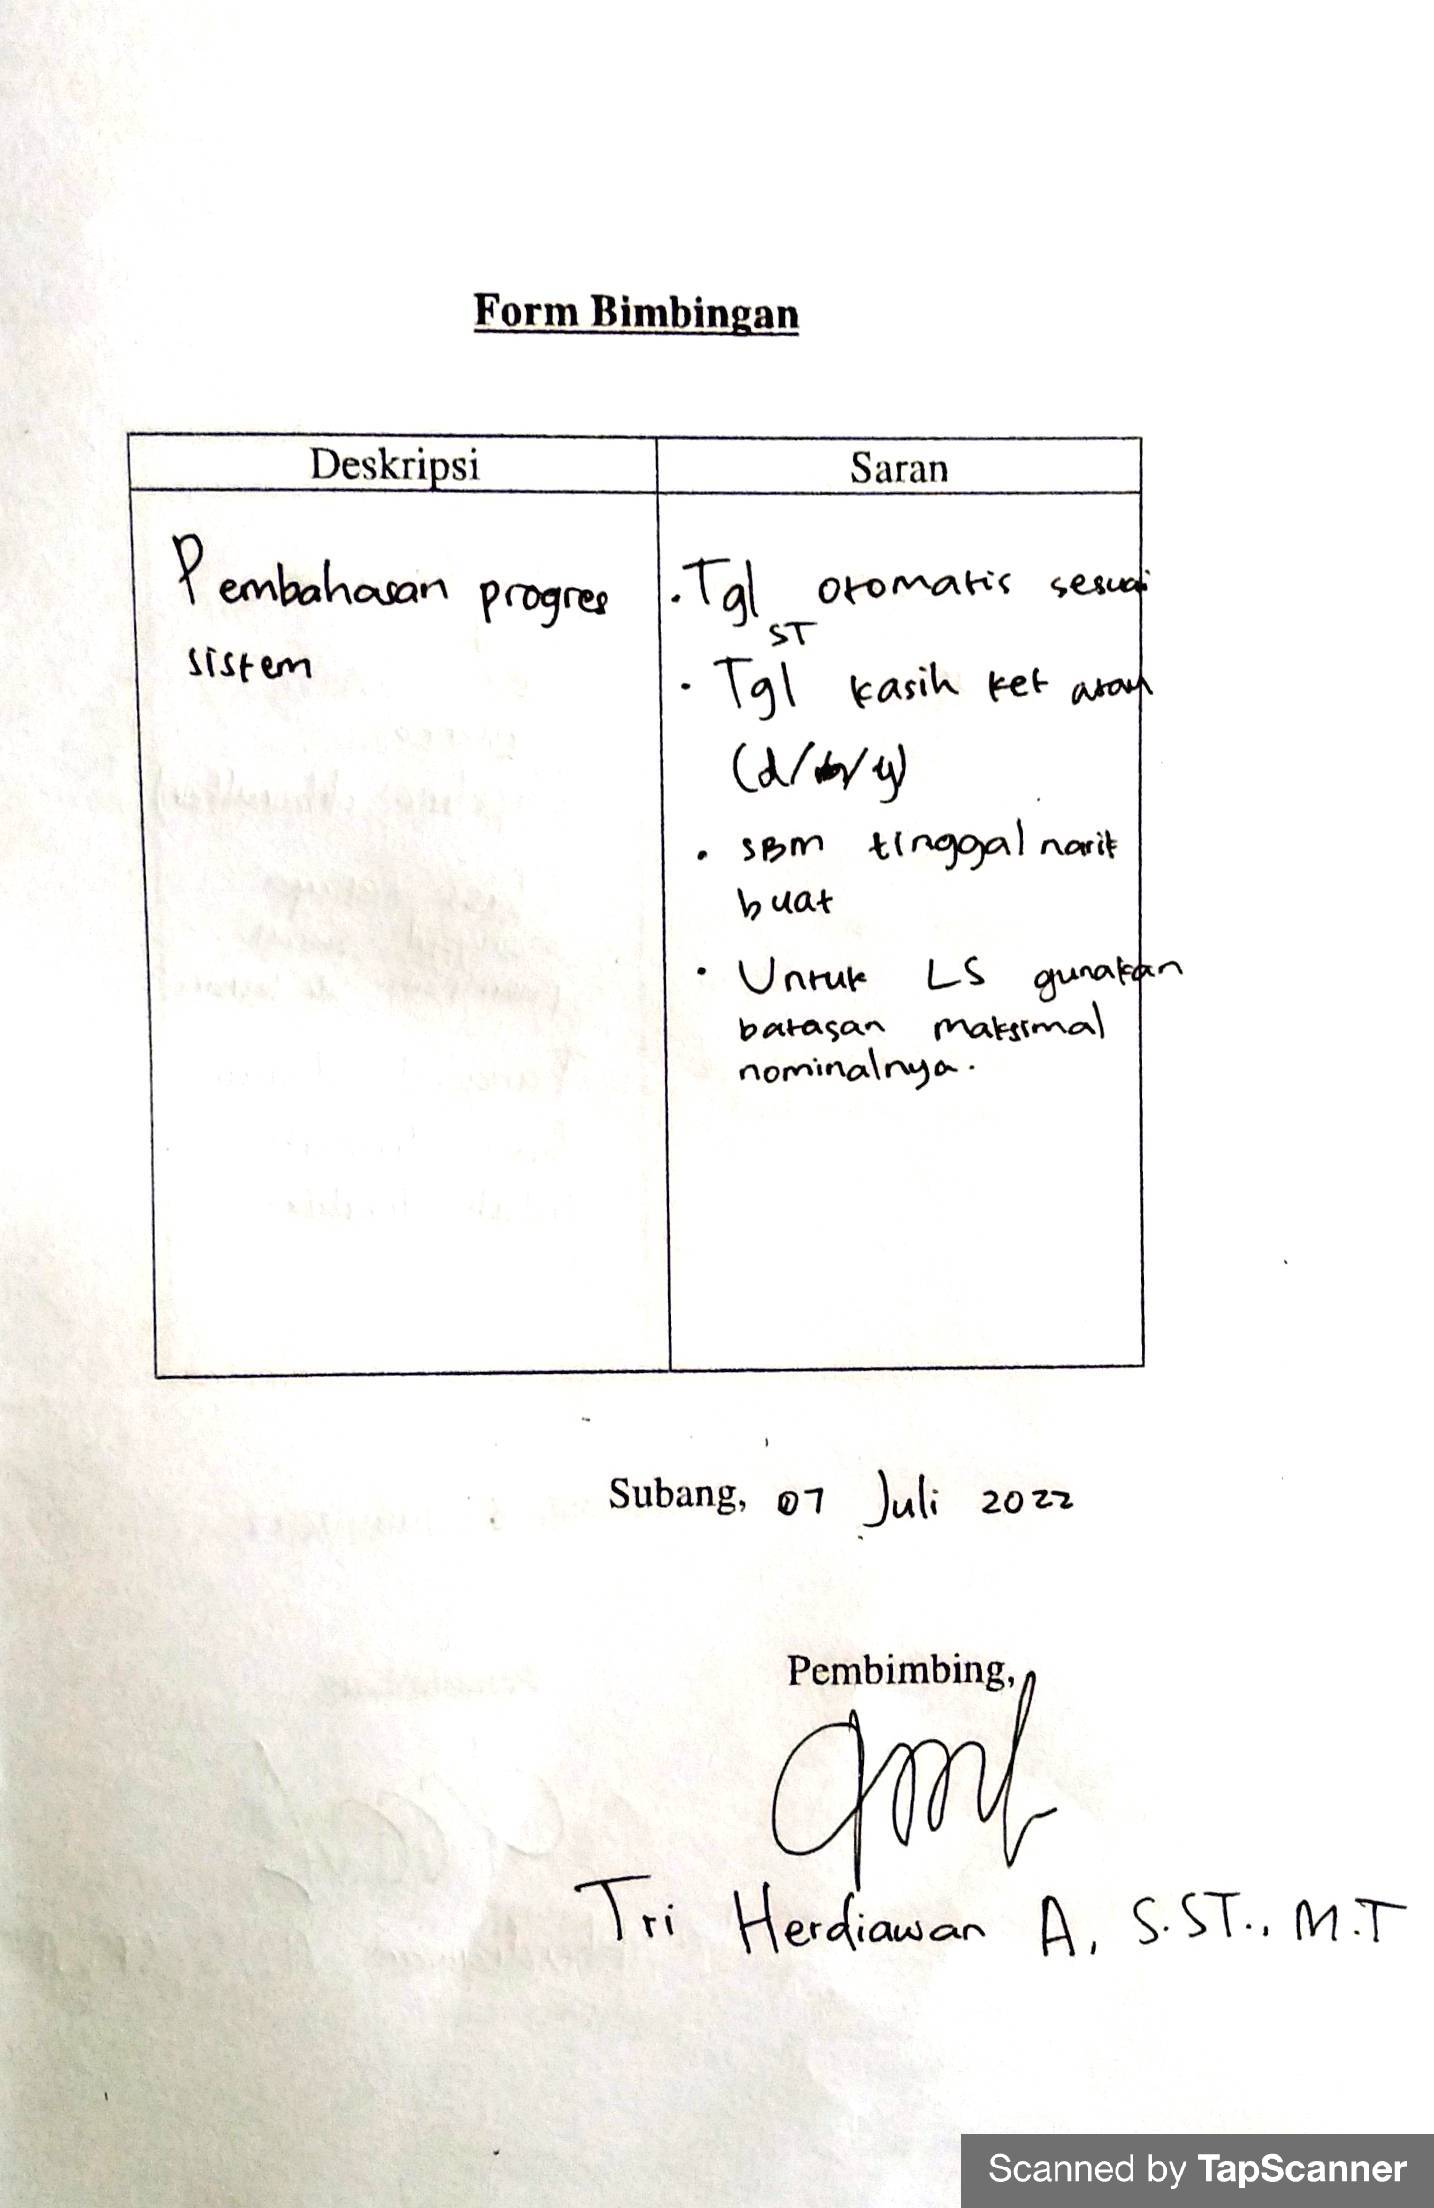 Form Bimbingan
Deskripsi
Saran
Pembahasan progres
sistem
. Tgl otomatis sesuai
ST
. Tgl kasih ket atau
(d/m/y)
. SBM tinggal narik
buat
. Untuk LS gunakan
batasan maksimal
nominalnya.
Subang, 07 Juli 2022
Pembimbing,
Tri Herdiawan A, S.ST., M.T
Scanned by TapScanner